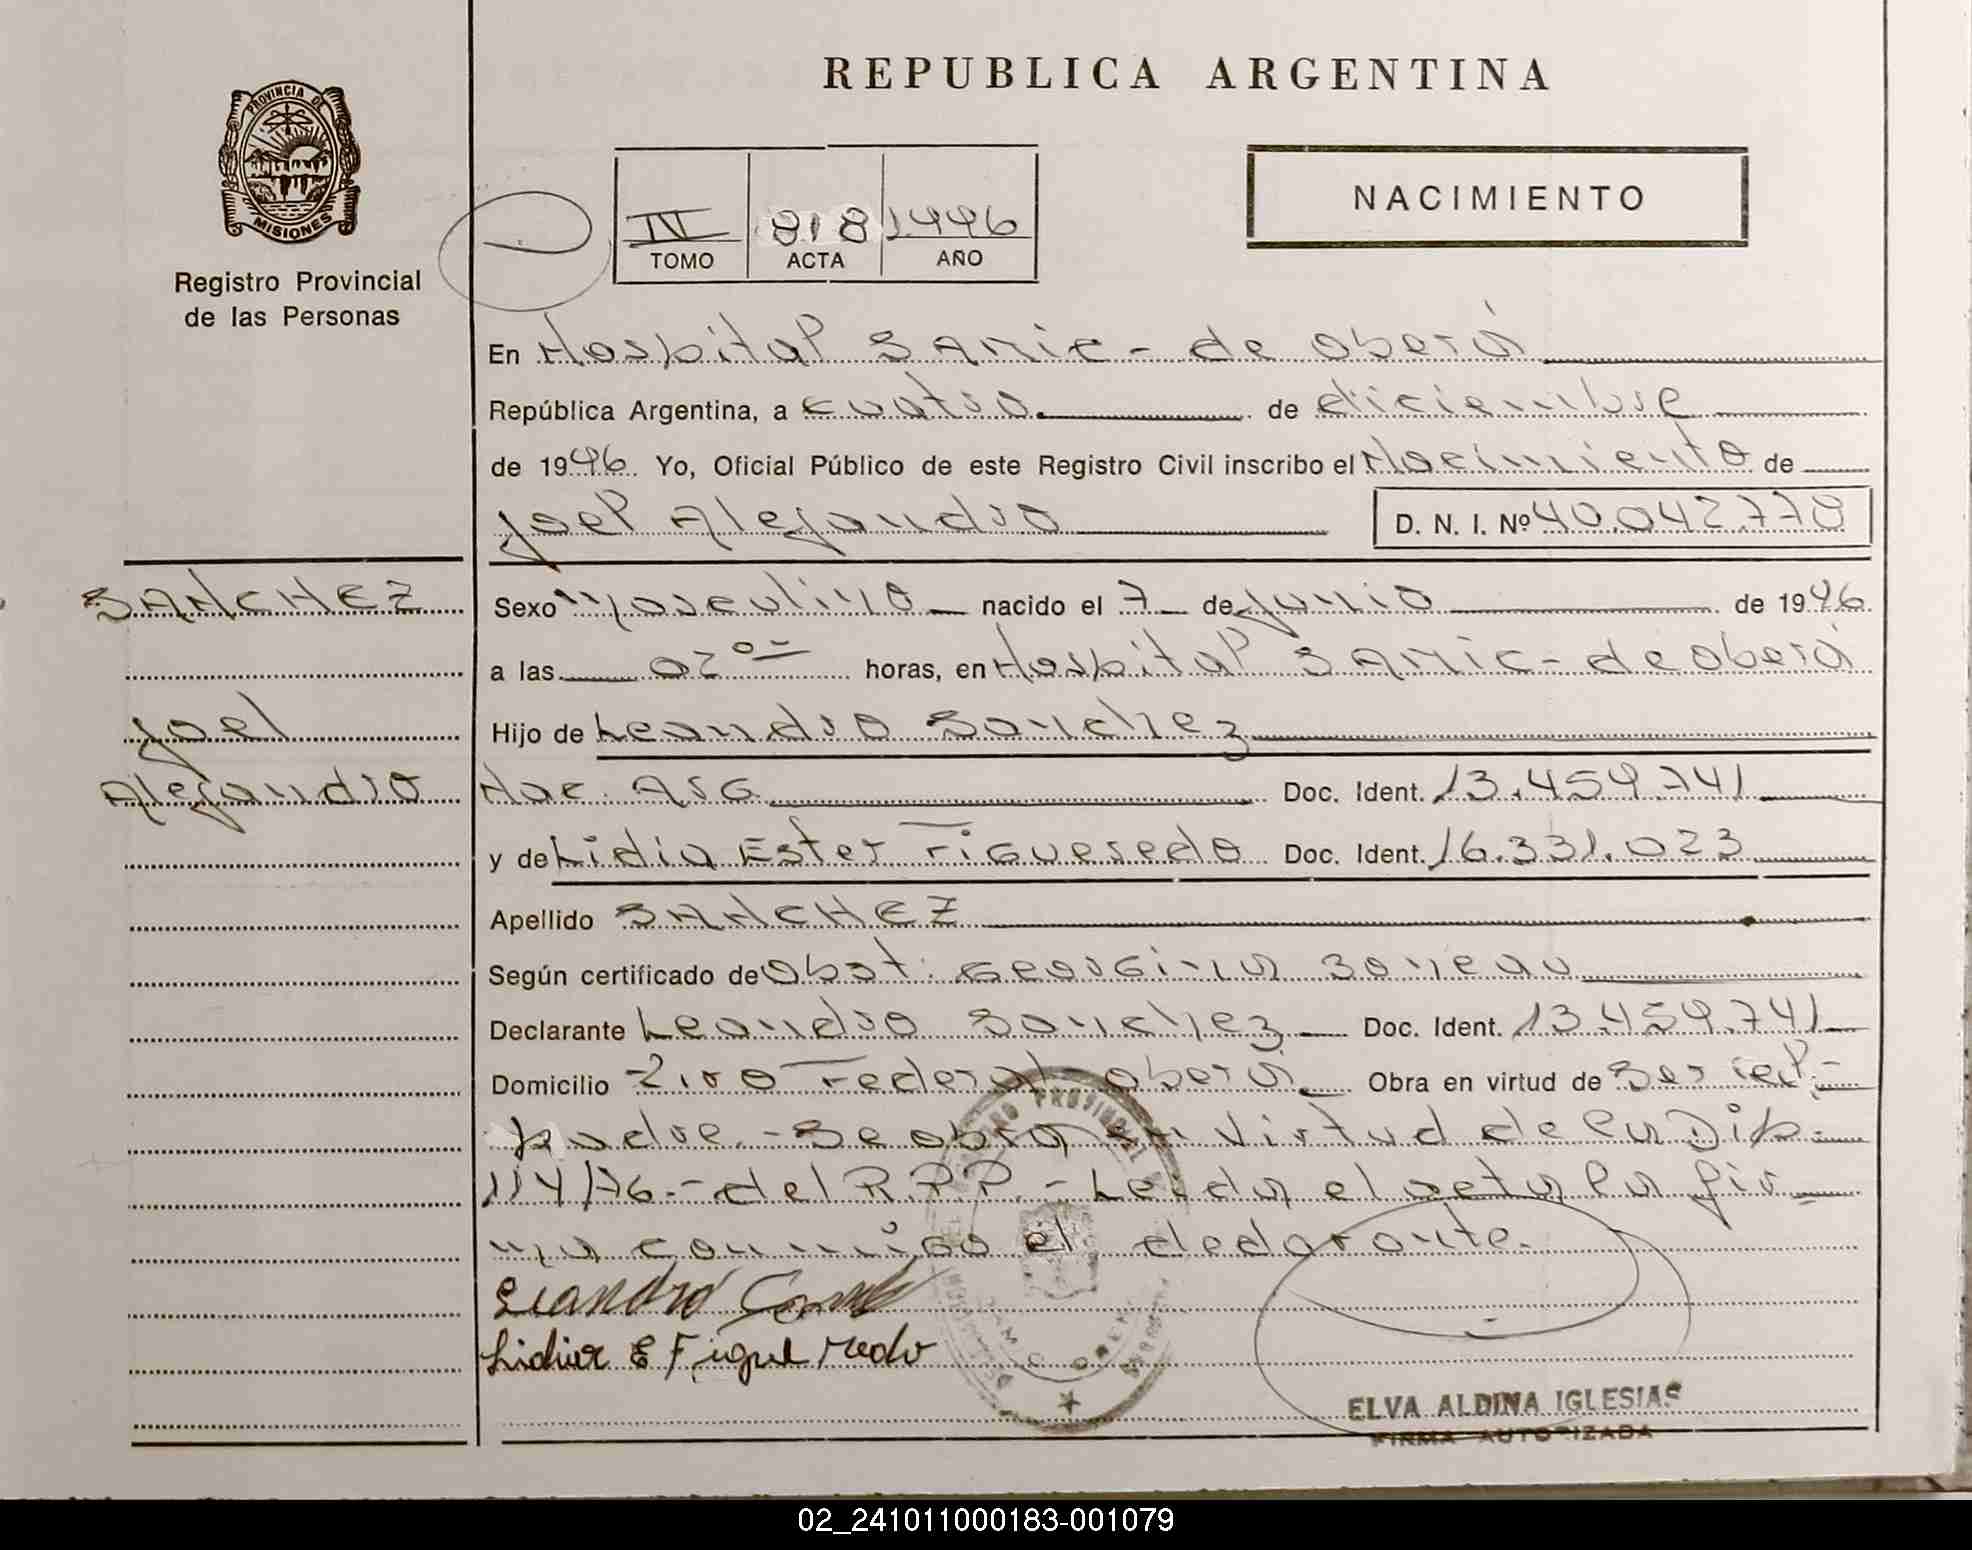 REPUBLICA ARGENTINA
PROVINCIA DE
MISIONES
Registro Provincial
de las Personas
IV 818 1996
TOMO ACTA AÑO
NACIMIENTO
En Hospital SAMIC - de Oberá
República Argentina, a cuatro de diciembre
de 1996 Yo, Oficial Público de este Registro Civil inscribo el Nacimiento de
Joel Alejandro D. N. I. Nº 40.042.778
SANCHEZ
Joel
Alejandro
Sexo Masculino nacido el 7 de junio de 1996
a las 02 00 horas, en Hospital SAMIC - de Oberá
Hijo de Leandro Sanchez
Nac. Arg Doc. Ident. 13.459.741
y de Lidia Ester Figueredo Doc. Ident. 16.331.023
Apellido SANCHEZ
Según certificado de Obst. Georgina
Declarante Leandro Sanchez Doc. Ident. 13.459.741
Domicilio Federal - Oberá Obra en virtud de Ser el -
padre. - Se obra en virtud de la Disp.
114/76. - del R.P.P. - Leida el acta la fir
ma conmigo el declarante.
Leandro
Lidia E Figueredo
ELVA ALDINA IGLESIAS
FIRMA AUTORIZADA
02_241011000183-001079